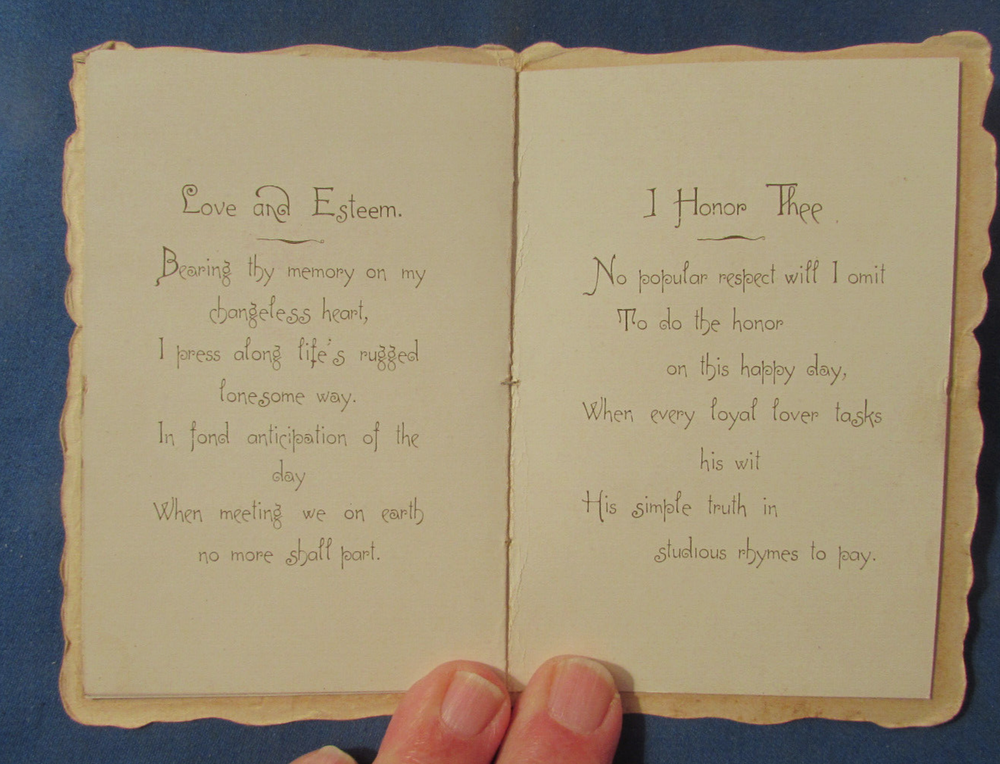 Love and Esteem.
Bearing thy memory on my
changeless heart,
I press along life's rugged
lonesome way.
In fond anticipation of the
day
When meeting we on earth
no more shall part.
I Honor Thee
No popular respect will I omit
To do the honor
on this happy day,
When every loyal lover tasks
his wit
His simple truth in
studious rhymes to pay.